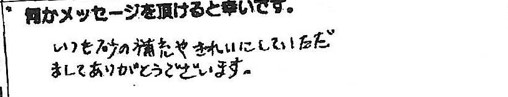 何かメッセージを頂けると幸いです。
いつも砂の補充やきれいにしていただ
きましてありがとうございます。